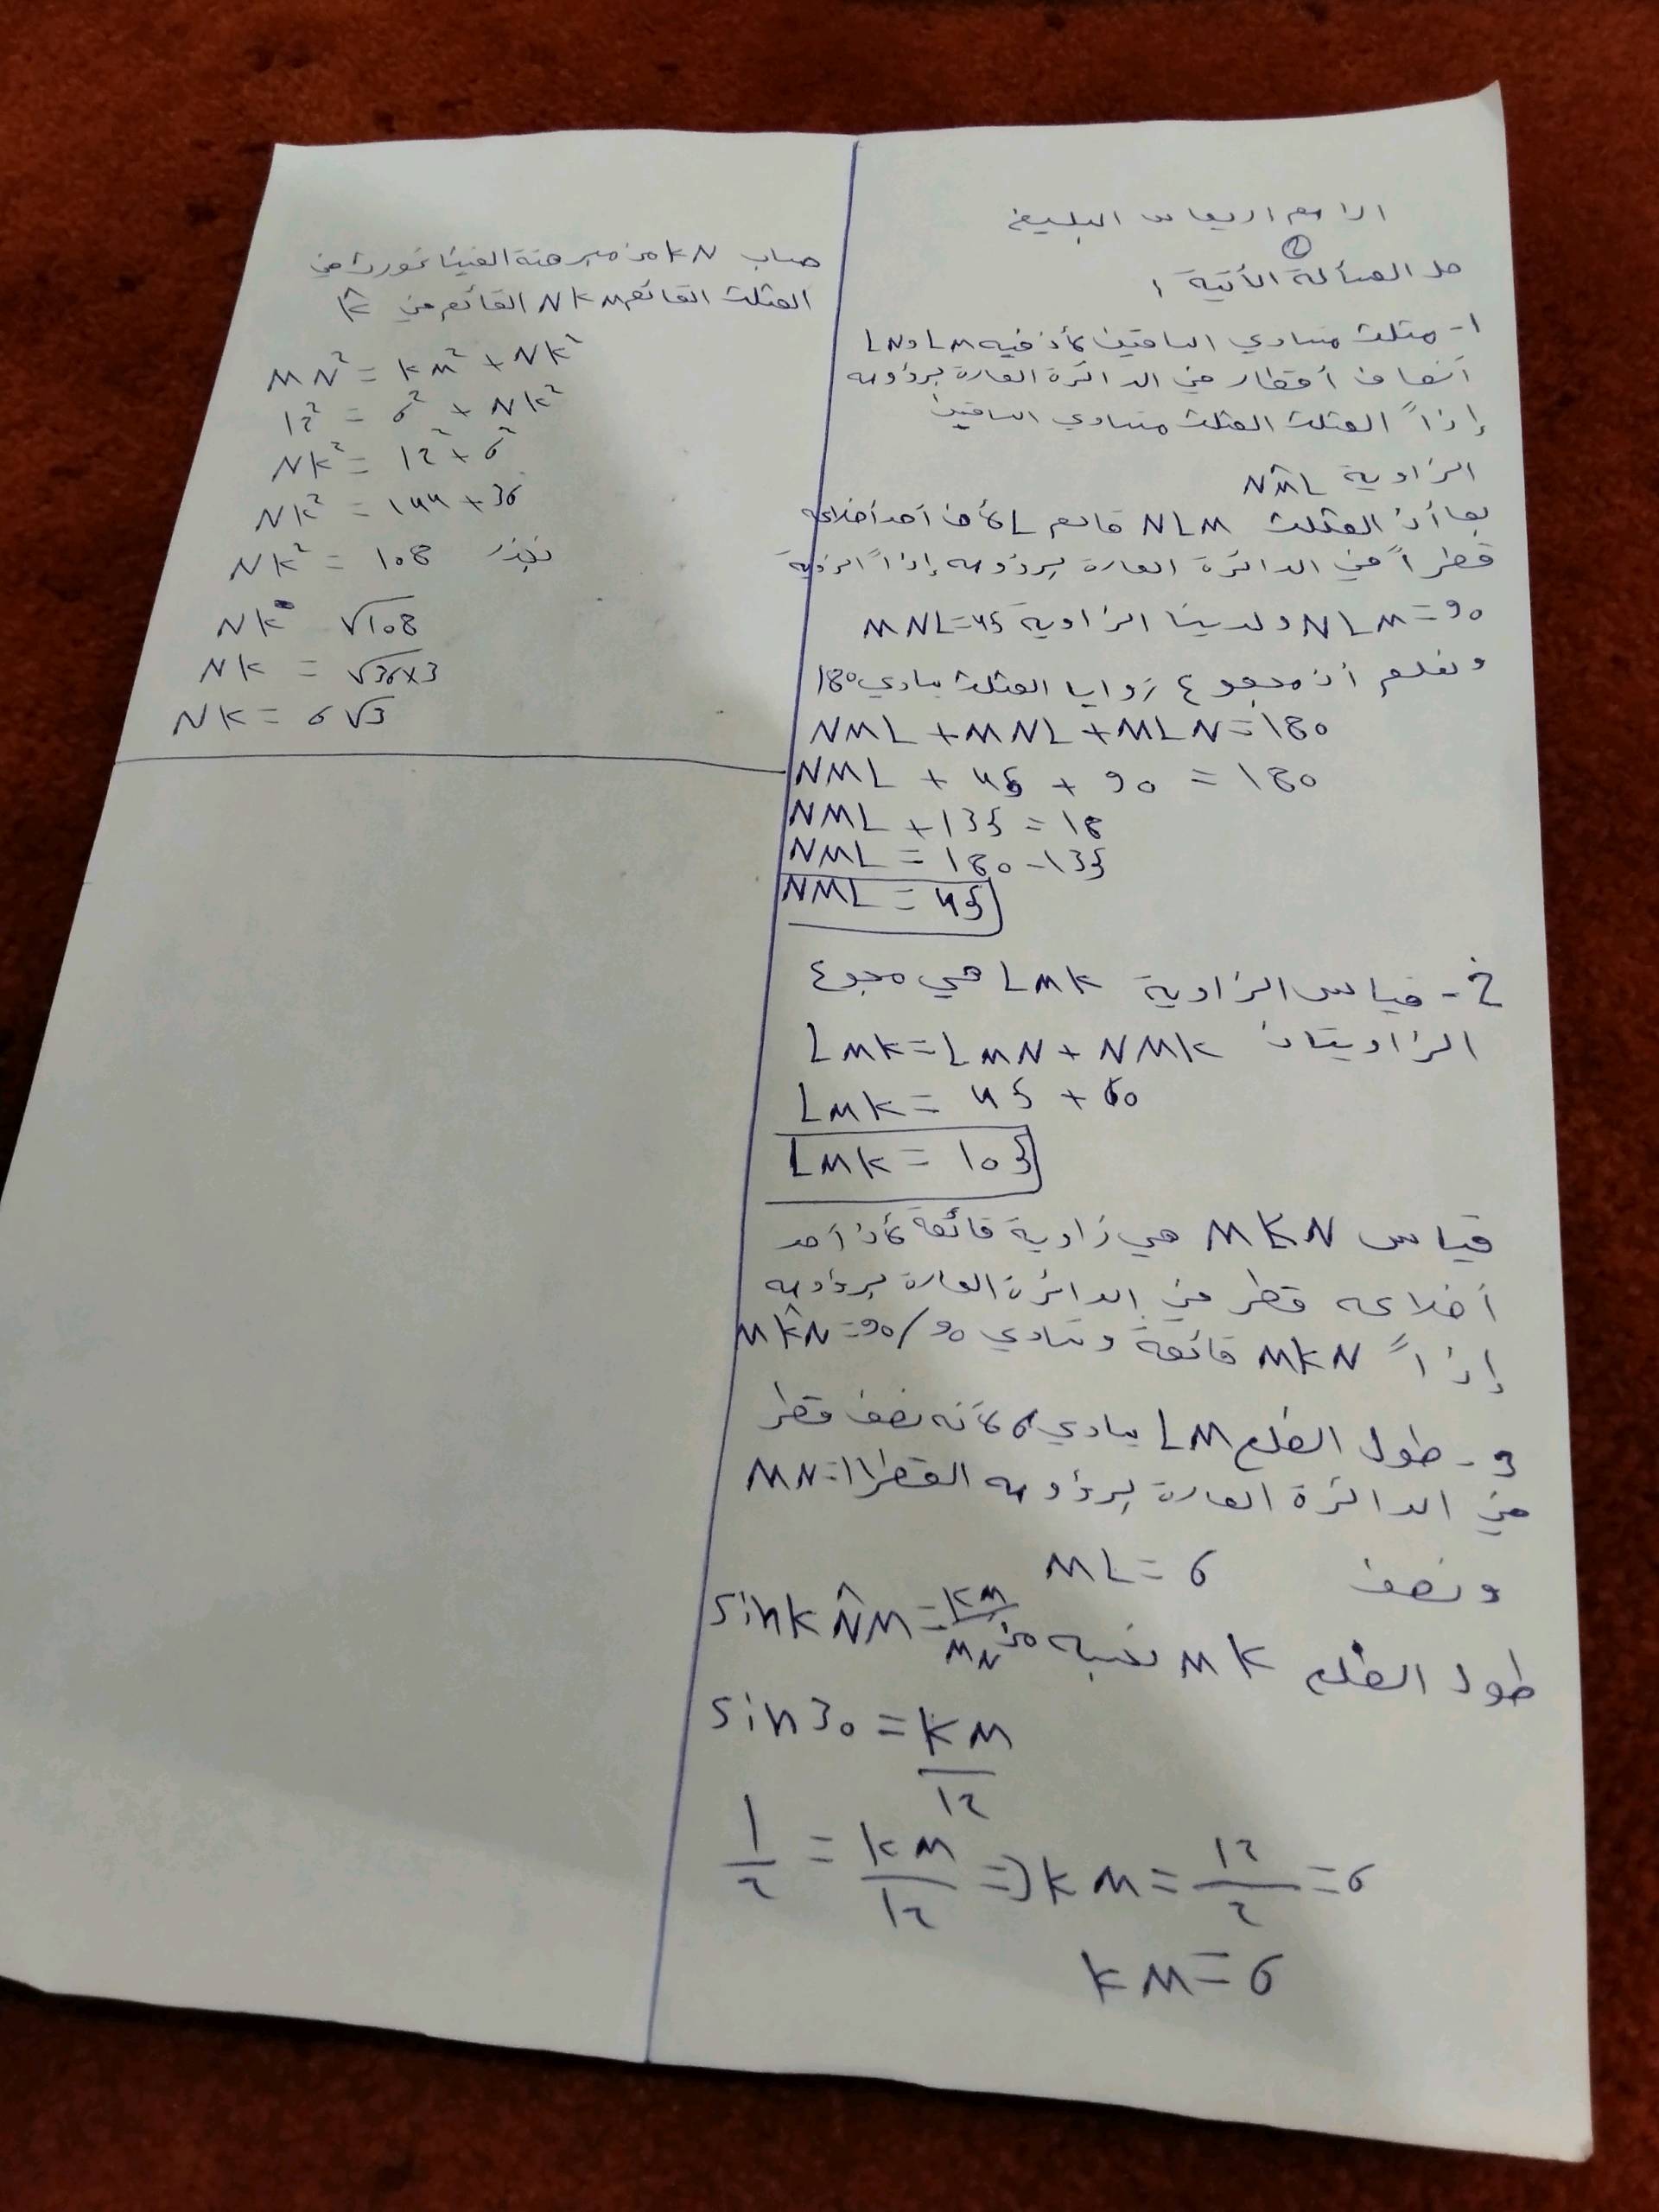 الاسم اريعاس البليخ
②
حل المسألة الآتية ١
1- مثلث متساوي الساقين لأن فيه LM و LN
أنصاف أقطار في الدائرة المارة برؤوسه
إذاً المثلث المثلث متساوي الساقين
الزاوية NM̂L
بما أن المثلث NLM قائم L لأن أحد أضلاعه
قطراً في الدائرة المارة برؤوسه إذاً الزاوية
NLM=90 ولدينا الزاوية MNL=45
ونعلم أن مجموع زوايا المثلث يساوي 180
NML+MNL+MLN=180
NML + 45 + 90 = 180
NML +135 = 18
NML = 180-135
NML = 45
2- قياس الزاوية LMK هي مجوع
الزاويتان LMK=LMN+NMK
LMK= 45 + 60
LMK = 105
قياس MKN هي زاوية قائمة لأن أحد
أضلاعه قطر في الدائرة المارة برؤوسه
إذاً MKN قائمة وتساوي 90/ MK̂N=90
3- طول الضلع LM يساوي 6 لأنه نصف قطر
في الدائرة المارة برؤوسه القطر MN=11
ونصف ML=6
طول الضلع MK نحسبه من sin KN̂M=KM/MN
sin30 = KM/12
1/2 = KM/12 => KM = 12/2 = 6
KM=6
حساب KN من مبرهنة الفيثاغورث في
المثلث القائم NKM القائم في K̂
MN² = KM² + NK²
12² = 6² + NK²
NK² = 12² + 6²
NK² = 144 + 36
NK² = 108 نجذر
NK √108
NK = √36×3
NK = 6√3